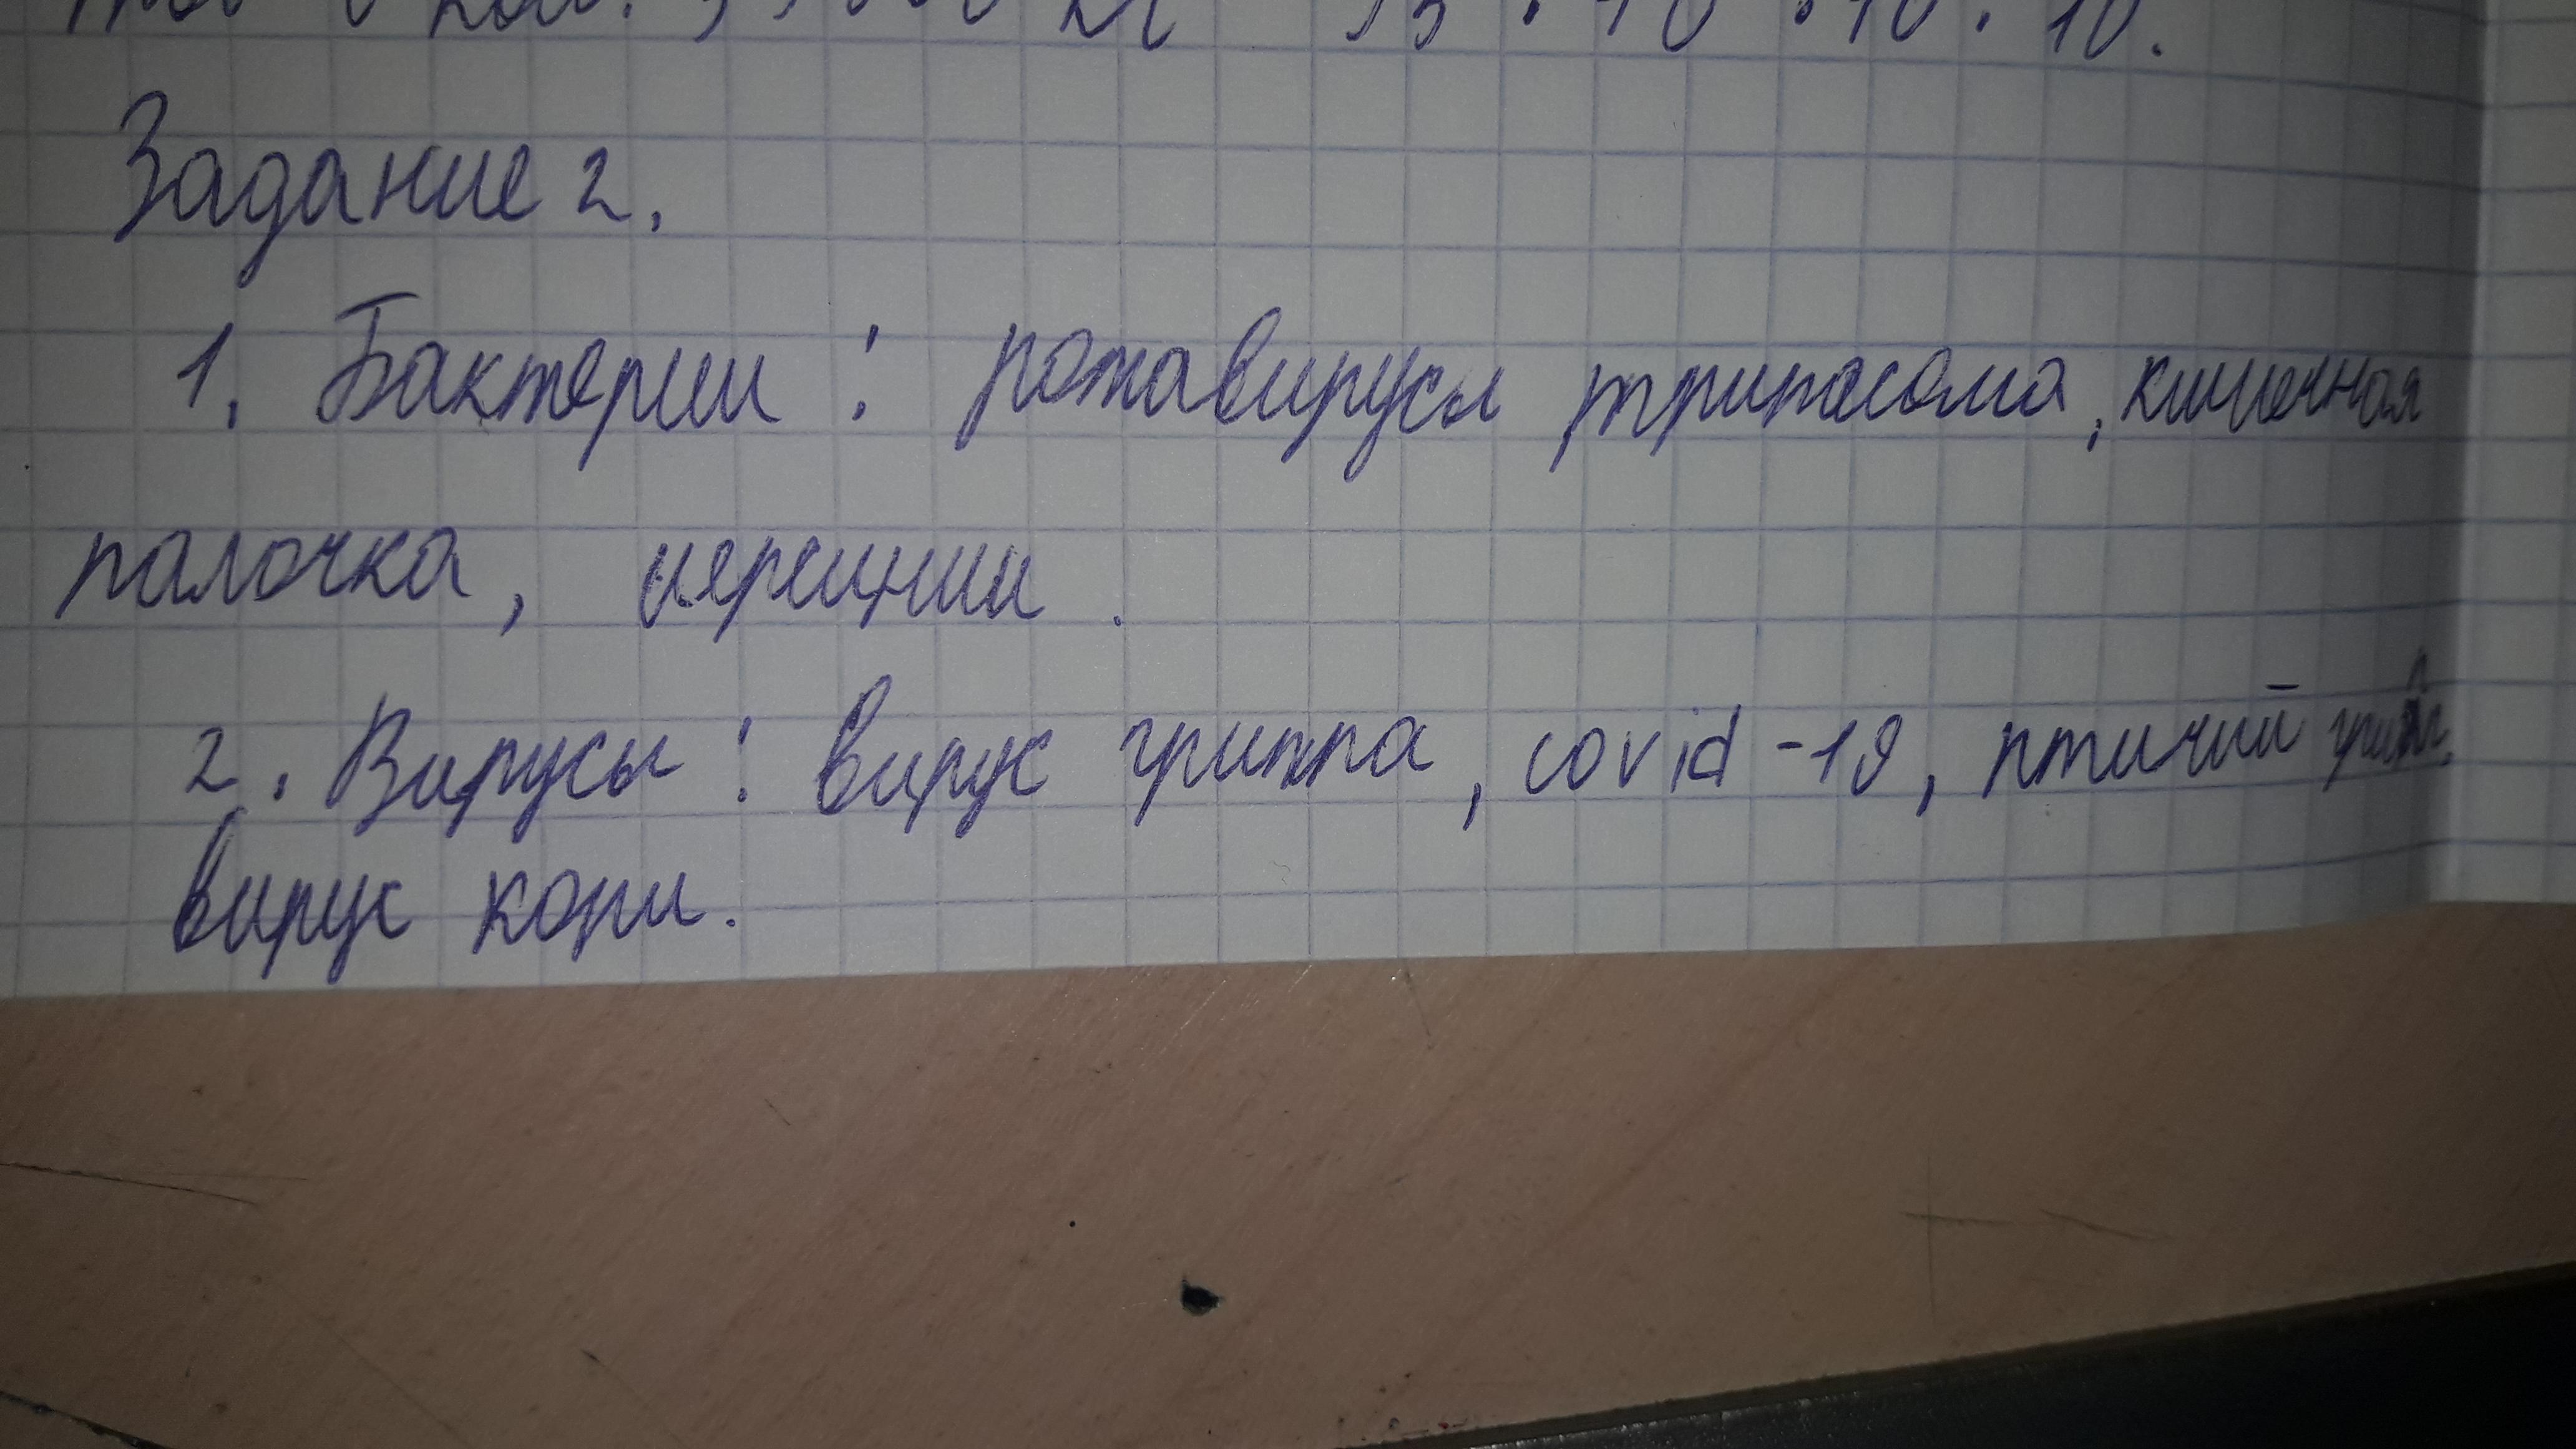 Задание 2.
1. Бактерии: ротавирусы, трипасома, кишечная
палочка, иерсинии.
2. Вирусы: вирус гриппа, covid-19, птичий грипп,
вирус кори.